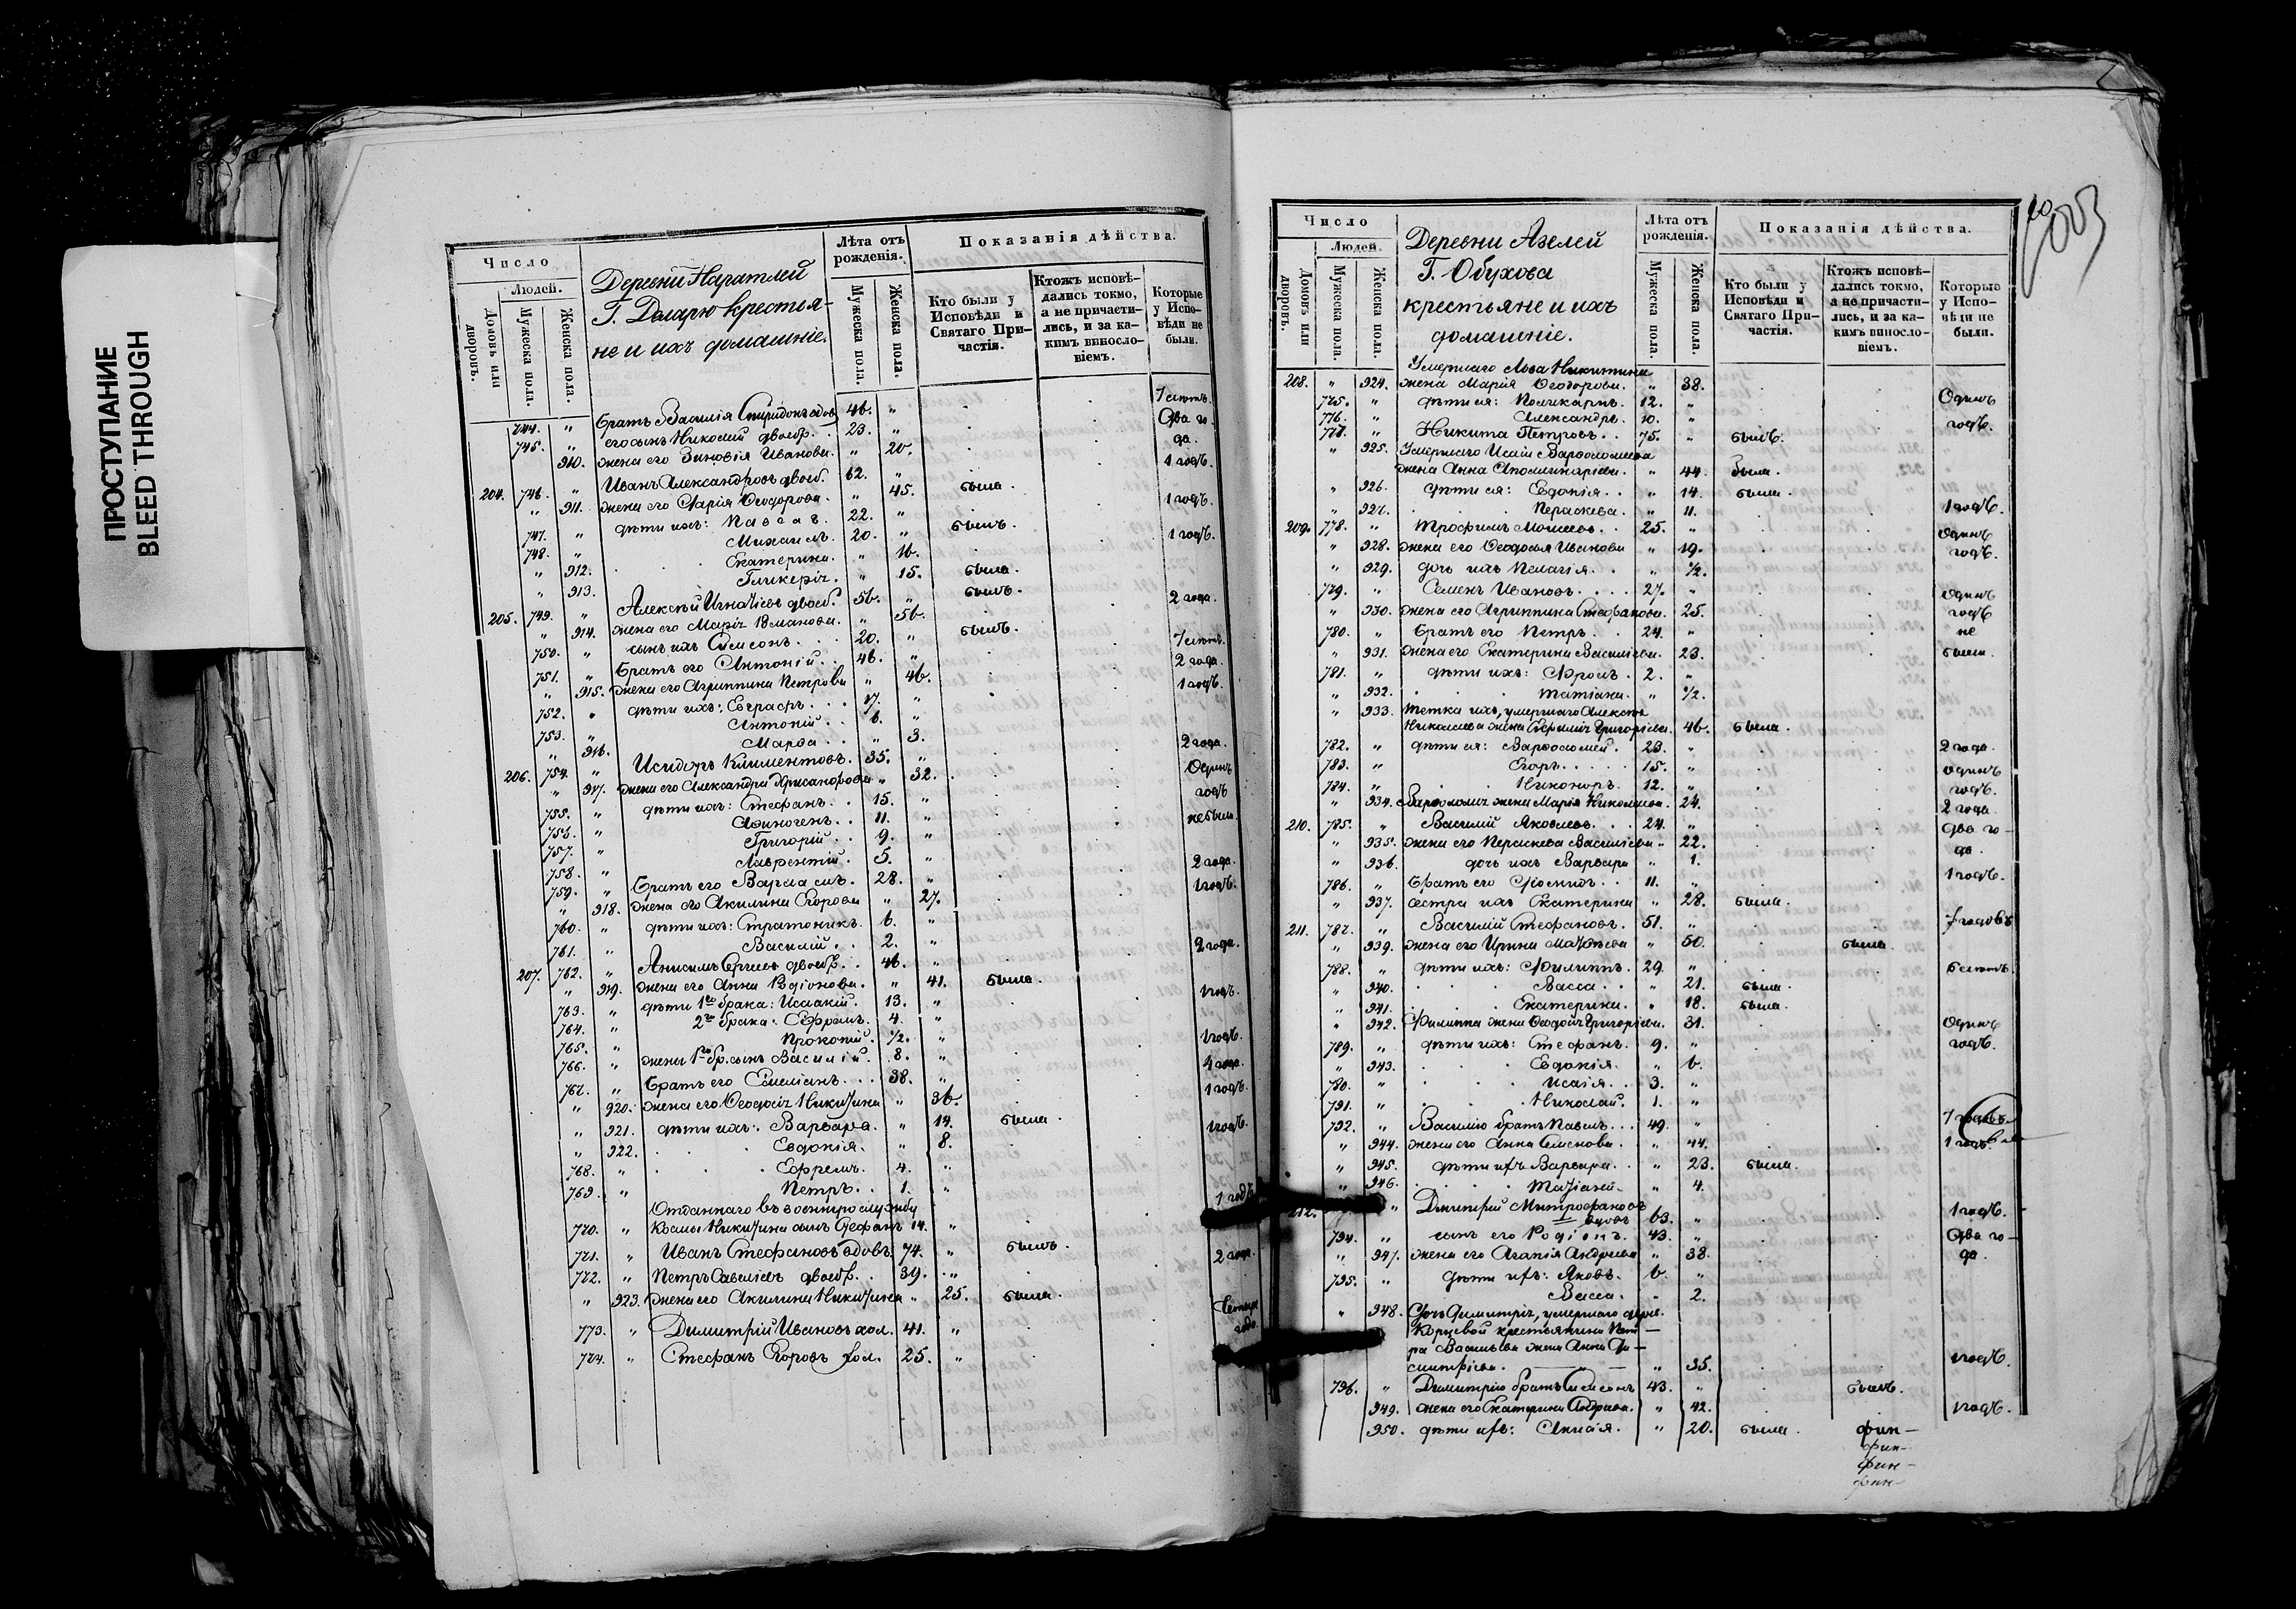 ПРОСТУПАНИЕ
BLEED THROUGH
Число
Людей.
Домовъ или дворовъ.
Мужеска пола.
Женска пола.
Деревни Наратлей
крестья-
не и ихъ домашніе.
Лѣта отъ рожденія.
Мужеска пола.
Женска пола.
Показанія дѣйства.
Кто были у Исповѣди и Святаго При-
частія.
Ктожъ исповѣ-
дались токмо,
а не причасти-
лись, и за ка-
кимъ виносло-
віемъ.
Которые
у Испо-
вѣди не
были.
744. " братъ Василія Спиридонъ вдов 46. " 7 лѣтъ.
745. " его сынъ Николай двоебр. 23. " Два го-
да.
" 910. жена его Зиновія Иванова. " 20. 1 годъ.
204. 746. " Иванъ Александровъ двоеб. 62. "
" 911. жена его Марія Ѳеодорова. " 45. была. 1 годъ.
747. " дѣти ихъ: Павелъ. 22. "
748. " Михаилъ. 20. " былъ. 1 годъ.
" 912. Екатерина. " 16.
" 913. Гликерія. " 15. была.
205. 749. " Алексѣй Игнатіевъ двоеб. 56. " былъ. 2 года.
" 914. жена его Марія Романова. " 56.
750. " сынъ ихъ Симеонъ. 20. " былъ. 7 лѣтъ.
751. " братъ его Антоній. 46. " 2 года.
" 915. жена его Агриппина Петрова " 46. 1 годъ.
752. " дѣти ихъ: Евграфъ. 17. "
753. " Антоній. 6. "
" 916. Марѳа. " 3.
206. 754. " Исидоръ Климентовъ. 35. " 2 года.
" 917. жена его Александра " 32. Одинъ
755. " дѣти ихъ: Стефанъ. 15. " годъ
756. " Аѳиногенъ. 11. " не были.
757. " Григорій. 9. "
758. " Лаврентій. 5. "
759. " братъ его Варлаамъ. 28. " 2 года.
" 918. жена его Акилина Егорова " 27. 1 годъ.
760. " дѣти ихъ: Стратоникъ. 6. "
761. " Василій. 2. "
207. 762. " Анисимъ Сергіевъ двоебр. 46. " 2 года.
" 919. жена его Анна Родіонова. " 41. была.
763. " дѣти 1го брака: Исаакій. 13. " 1 годъ.
764. " 2го брака: Ефремъ. 4. "
765. " Прокопій. 1/2. "
766. " жены 1го бр. сынъ Василій. 8. " 1 годъ.
767. " братъ его Емеліанъ. 38. " 4 года.
" 920. жена его Ѳеодосія Никитина " 36. 1 годъ.
" 921. дѣти ихъ: Варвара. " 14. была.
" 922. Евдокія. " 8. 1 годъ.
768. " Ефремъ. 4. "
769. " Петръ. 1. "
Отданнаго въ военную службу
770. " Космы Никитина сынъ Стефанъ 14. " 1 годъ
771. " Иванъ Стефановъ вдовъ. 74. " былъ.
772. " Петръ Савеліевъ двоебр. 39. " 2 года.
" 923. жена его Акилина Никитина " 25. была.
773. " Димитрій Ивановъ хол. 41. " Четыре
774. " Стефанъ Егоровъ хол. 25. " года.
Число
Людей.
Домовъ или дворовъ.
Мужеска пола.
Женска пола.
Деревни Азелей
Г. Обухова
крестьяне и ихъ
домашніе.
Лѣта отъ рожденія.
Мужеска пола.
Женска пола.
Показанія дѣйства.
Кто были у
Исповѣди и
Святаго При-
частія.
Ктожъ исповѣ-
дались токмо,
а не причасти-
лись, и за ка-
кимъ виносло-
віемъ.
Которые
у Испо-
вѣди не
были.
Умершаго Льва Никитина
208. " 924. жена Марія Ѳеодорова. " 38.
775. " дѣти ея: Поликарпъ. 12. " Одинъ
776. " Александръ. 10. " годъ.
777. " Никита Петровъ. 75. " былъ.
" 925. Умершаго Исаіи Варѳоломеева
жена Анна Аполинаріева. " 44. была.
" 926. дѣти ея: Евдокія. " 14. была.
" 927. Параскева. " 11. 1 годъ.
209. 778. " Трофимъ Моисеевъ. 25. " Одинъ
" 928. жена его Ѳеодосія Иванова " 19. годъ.
" 929. дочь ихъ Пелагія. " 1/2.
779. " Семенъ Ивановъ. 27. " Одинъ
" 930. жена его Агриппина Стефанова. 25. годъ
780. " братъ его Петръ. 24. " не
" 931. жена его Екатерина Василіева. 23. были.
781. " дѣти ихъ: Фролъ. 2. "
" 932. Татіана. " 1/2.
" 933. тетка ихъ, умершаго Алексѣя
Николаева жена Григоріева. 46. была.
782. " дѣти ея: Варѳоломей. 23. " 2 года.
783. " Егоръ. 15. " Одинъ
784. " Никоноръ. 12. " годъ.
" 934. Варѳоломея жена Марія Николаева. 24. 2 года
210. 785. " Василій Яковлевъ. 24. " Два го-
" 935. жена его Параскева Василіева " 22. да.
" 936. дочь ихъ Варвара " 1.
786. " братъ его Леонидъ. 11. " 1 годъ.
" 937. сестра ихъ Екатерина " 28. была.
211. 787. " Василій Стефановъ. 51. " 7 годовъ
" 939. жена его Ирина Матѳеева " 50. была.
788. " дѣти ихъ: Филиппъ. 29. " 6 лѣтъ.
" 940. Васса. " 21. была.
" 941. Екатерина. " 18. была.
" 942. Филиппа жена Ѳеодосія Григоріева. 31. Одинъ
789. " дѣти ихъ: Стефанъ. 9. " годъ.
" 943. Евдокія. " 6.
780. " Исаія. 3. "
791. " Николай. 1. "
792. " Василію братъ Павелъ. 49. " 7 годовъ
" 944. жена его Анна Семенова. " 44. 1 годъ.
" 945. дѣти ихъ Варвара. " 23. была.
" 946. Татіана. " 4.
212. " Димитрій Митрофановъ
вдовъ 63. " 1 годъ.
794. " сынъ его Родіонъ. 43. " Два го-
" 947. жена его Агапія Андреева " 38. да.
795. " дѣти ихъ: Яковъ. 6. "
Васса. " 2.
" 948. Дочь Димитрія, умершаго дерев.
крестьянина Пет-
ра Васильева жена Анна Ди-
митріева. " 35. 1 годъ.
796. " Димитрію братъ Симеонъ 43. " былъ.
949. жена его Екатерина Андреева. " 42. 1 годъ.
950. дѣти ихъ: Анисія. " 20. была.
фин-
фин-
фин-
фин-